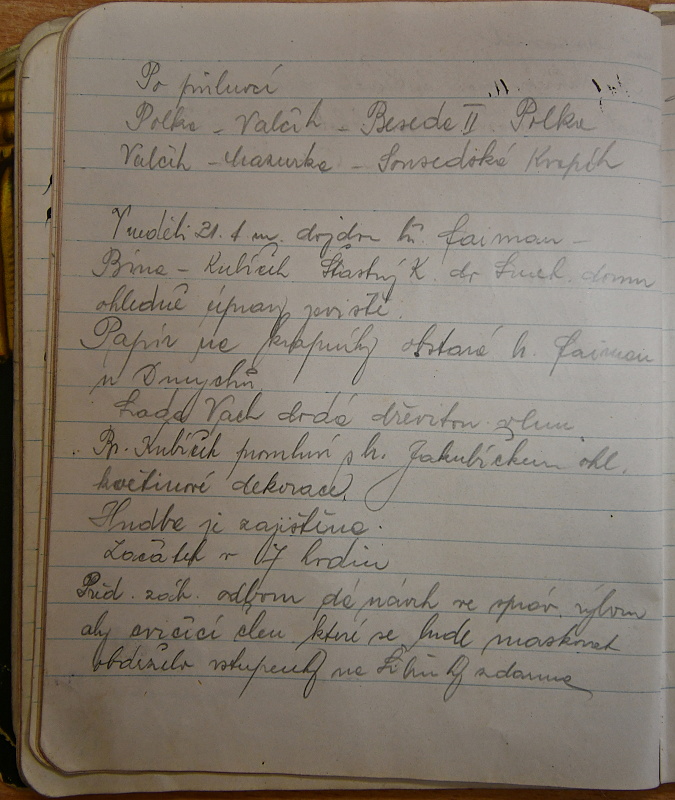 Po půlnoci
Polka - Valčík - Beseda II Polka
Valčík - Mazurka - Sousedská Kvapík
V neděli 21. t. m. dojdou br. Faiman -
Bína - Kubíčik Šťastný K. do domu
ohledně úpravy jeviště.
Papír na krapníky obstará br. Faiman
u Dmychů
Lada Vach dodá dřevitou vlnu
Br. Kubíčik promluví s br. Jakubíčkem ohl.
květinové dekorace.
Hudba je zajištěna.
Začátek v 17 hodin
Před. záb. odboru dá návrh ve správ. výboru
aby cvičící člen. které se bude maskovat
obdrželo vstupenky na Šibřinky zdarma